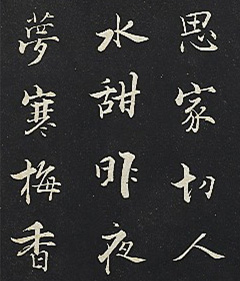 思家切人
水甜昨夜
夢寒梅香